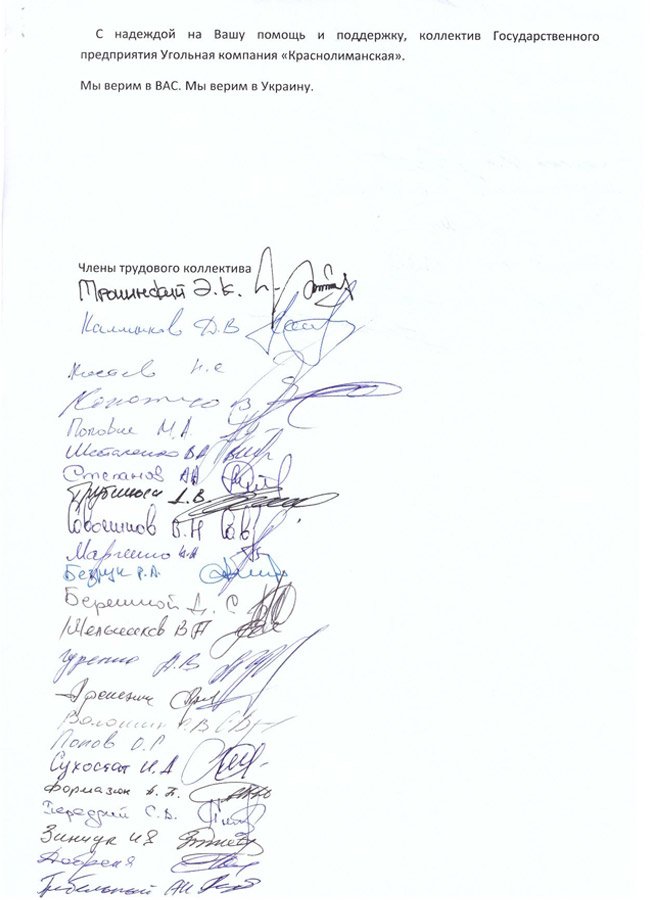 С надеждой на Вашу помощь и поддержку, коллектив Государственного
предприятия Угольная компания «Краснолиманская».
Мы верим в ВАС. Мы верим в Украину.
Члены трудового коллектива
Трошинский Э.К.
Калмыков Д.В
Н.С
В
Попович М.А.
Шеталенко В.А
Степанов АА
В.
Савощиков В.Н Сав
Марченко
Безрук Р.А.
Бережной Д. С
Мельников В П
А.В
Еременик
Волошин В
Попов О.Г
Сухостат И.А
Формазюк А. П.
Передрий С.В.
Зинчук И Я
Добреня
АИ